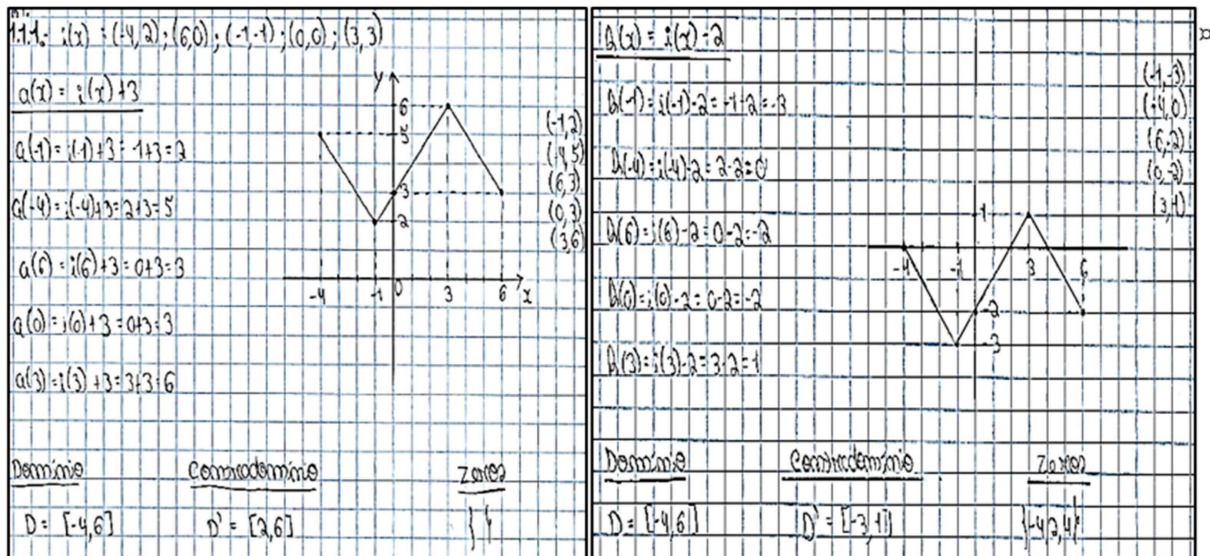 1.1.1. i(x) = (-4,2); (6,0); (-1,-1); (0,0); (3,3)
a(x) = i(x)+3
a(-1) = i(-1)+3 = -1+3 = 2
a(-4) = i(-4)+3 = 2+3 = 5
a(6) = i(6)+3 = 0+3 = 3
a(0) = i(0)+3 = 0+3 = 3
a(3) = i(3)+3 = 3+3 = 6
y
6
5
3
2
-4 -1 0 3 6 x
(-1,2)
(-4,5)
(6,3)
(0,3)
(3,6)
Domínio Contradomínio Zeros
D = [-4,6] D' = [2,6] { }
i(x) - 2
i(-1)-2 = -1-2 = -3
i(-4)-2 = 2-2 = 0
i(6)-2 = 0-2 = -2
i(0)-2 = 0-2 = -2
i(3)-2 = 3-2 = 1
(-1,-3)
(-4,0)
(6,-2)
(0,-2)
(3,1)
1
-4 -1 3 6
-2
-3
Domínio Contradomínio Zeros
D = [-4,6] D' = [-3,1]